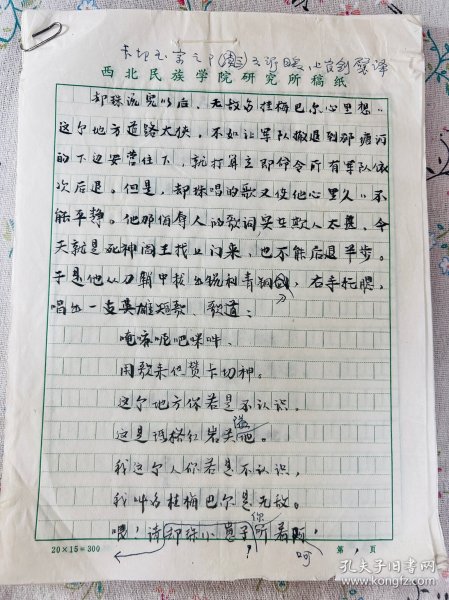 西北民族学院研究所稿纸
却珠说完以后，无敌名桂梅巴尔心里想：
这个地方道路太侠，不如让军队撤退到那塘河
的下边安营住下，就打算立即命令所有军队依
次后退。但是，却珠唱的歌又使他心里久久不
能平静。他那侮辱人的歌词实在欺人太甚，今
天就是死神阎王找上门来，也不能后退半步。
于是他从刀鞘中拔出锐利青钢剑，右手托腮，
唱出一支英雄短歌，歌道：
唵嘛呢叭咪吽，
用歌来供赞卡切神。
这个地方你若是不认识，
这是谭格红岩头隘。
我这个人你若是不认识，
我叫名桂梅巴尔是无敌。
喂！请却珠小崽子你听着啊！
20×15=300
第 1 页
孔夫子旧书网